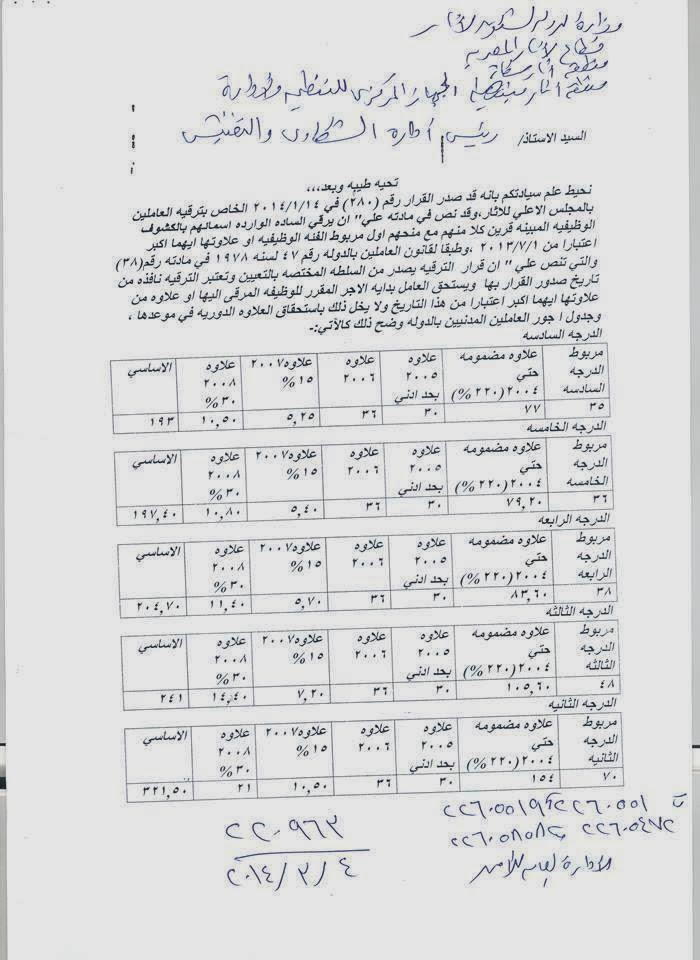 وزارة الدولة لشئون الآثار
قطاع الآثار المصرية
منطقة آثار سقارة
الجهاز المركزى للتنظيم والإدارة
السيد الاستاذ/ رئيس ادارة الشكاوى والتفتيش
تحيه طيبه وبعد,,,
نحيط علم سيادتكم بانه قد صدر القرار رقم (٢٨٠) في ٢٠١٤/١/١٤ الخاص بترقيه العاملين
بالمجلس الاعلي للاثار,وقد نص في مادته علي" ان يرقي الساده الوارده اسمائهم بالكشوف
الوظيفيه المبينه قرين كلا منهم مع منحهم اول مربوط الفئه الوظيفيه او علاوتها ايهما اكبر
اعتبارا من ٢٠١٣/٧/١ ,وطبقا لقانون العاملين بالدوله رقم ٤٧ لسنه ١٩٧٨ في مادته رقم(٣٨)
والتي تنص علي " ان قرار الترقيه يصدر من السلطه المختصه بالتعيين وتعتبر الترقيه نافذه من
تاريخ صدور القرار بها ويستحق العامل بدايه الاجر المقرر للوظيفه المرقى اليها او علاوه من
علاوتها ايهما اكبر اعتبارا من هذا التاريخ ولا يخل ذلك باستحقاق العلاوه الدوريه في موعدها ,
وجدول اجور العاملين المدنيين بالدوله وضح ذلك كالآتي:-
الدرجه السادسه
مربوط الدرجه السادسه علاوه مضمومه حتي ٢٠٠٤(٢٢٠%) علاوه ٢٠٠٥ بحد ادني علاوه ٢٠٠٦ علاوه٢٠٠٧ ١٥% علاوه ٢٠٠٨ ٣٠% الاساسي
٣٥ ٧٧ ٣٠ ٣٦ ٥,٢٥ ١٠,٥٠ ١٩٣
الدرجه الخامسه
مربوط الدرجه الخامسه علاوه مضمومه حتي ٢٠٠٤(٢٢٠%) علاوه ٢٠٠٥ بحد ادني علاوه ٢٠٠٦ علاوه٢٠٠٧ ١٥% علاوه ٢٠٠٨ ٣٠% الاساسي
٣٦ ٧٩,٢٠ ٣٠ ٣٦ ٥,٤٠ ١٠,٨٠ ١٩٧,٤٠
الدرجه الرابعه
مربوط الدرجه الرابعه علاوه مضمومه حتي ٢٠٠٤(٢٢٠%) علاوه ٢٠٠٥ بحد ادني علاوه ٢٠٠٦ علاوه٢٠٠٧ ١٥% علاوه ٢٠٠٨ ٣٠% الاساسي
٣٨ ٨٣,٦٠ ٣٠ ٣٦ ٥,٧٠ ١١,٤٠ ٢٠٤,٧٠
الدرجه الثالثه
مربوط الدرجه الثالثه علاوه مضمومه حتي ٢٠٠٤(٢٢٠%) علاوه ٢٠٠٥ بحد ادني علاوه ٢٠٠٦ علاوه٢٠٠٧ ١٥% علاوه ٢٠٠٨ ٣٠% الاساسي
٤٨ ١٠٥,٦٠ ٣٠ ٣٦ ٧,٢٠ ١٤,٤٠ ٢٤١
الدرجه الثانيه
مربوط الدرجه الثانيه علاوه مضمومه حتي ٢٠٠٤(٢٢٠%) علاوه ٢٠٠٥ بحد ادني علاوه ٢٠٠٦ علاوه٢٠٠٧ ١٥% علاوه ٢٠٠٨ ٣٠% الاساسي
٧٠ ١٥٤ ٣٠ ٣٦ ١٠,٥٠ ٢١ ٣٢١,٥٠
٢٢٠٩٦٣
٢٠١٤/٣/٤